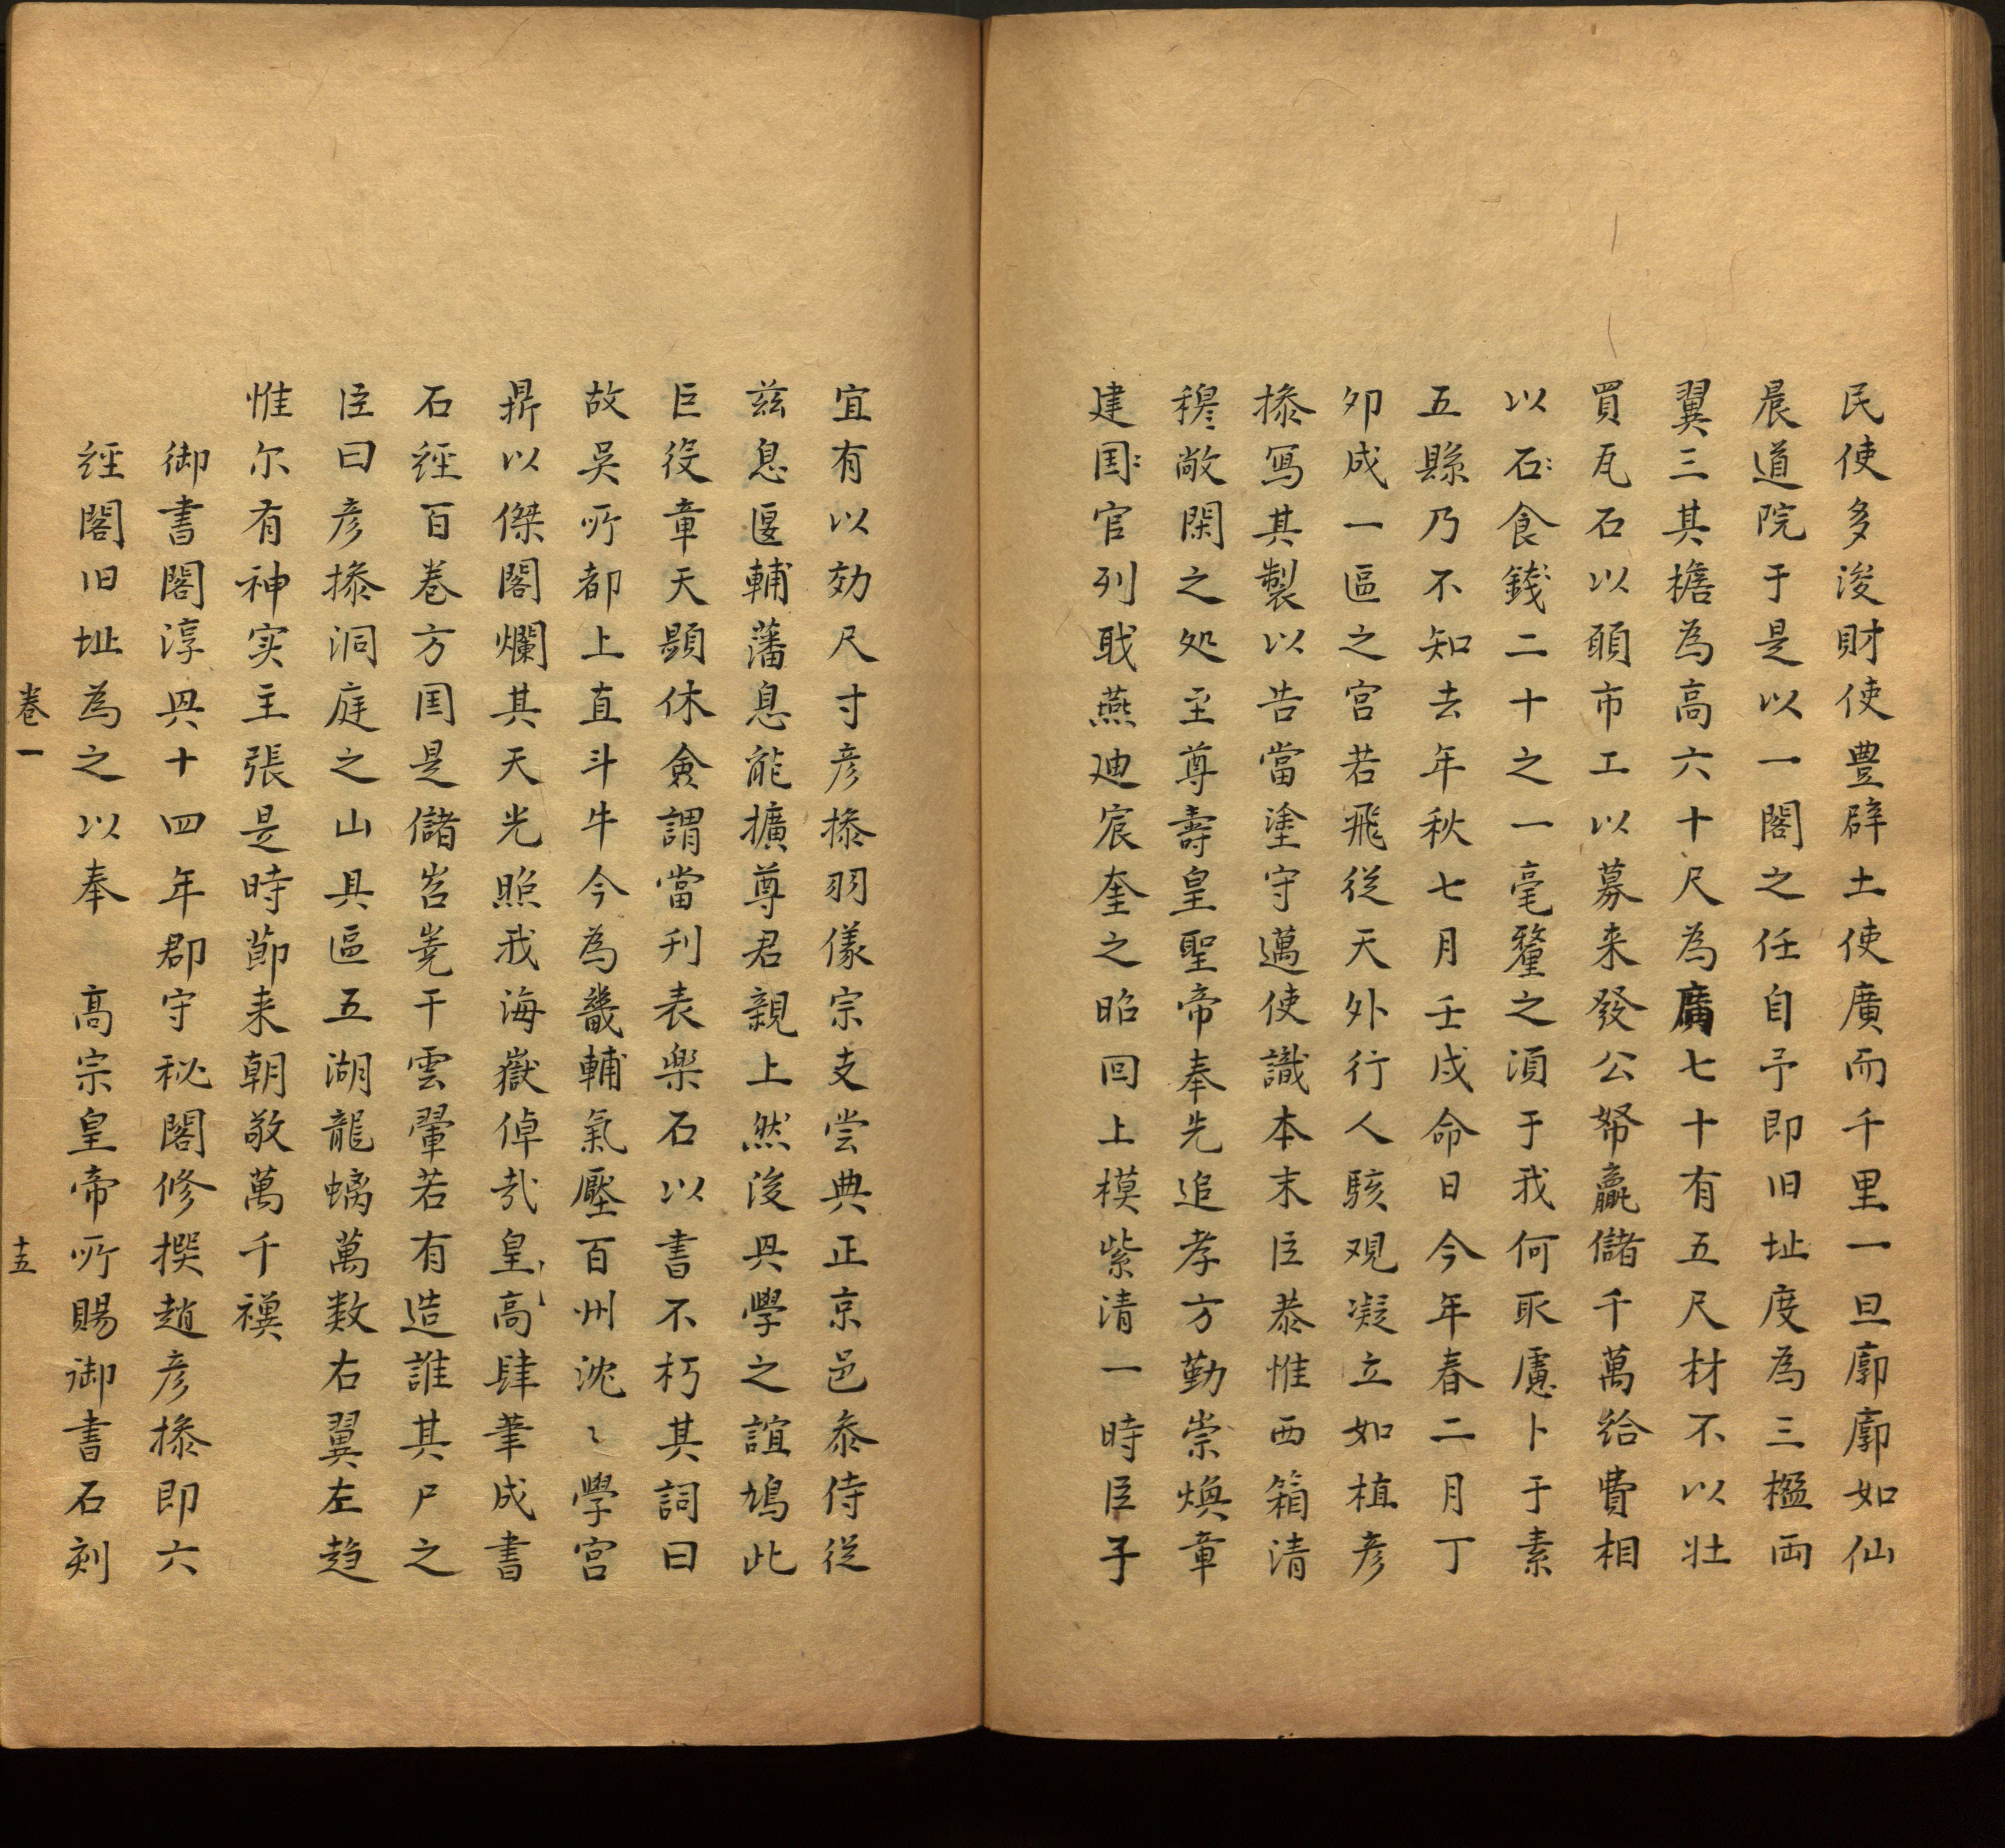 民使多浚財使豊辟土使廣而千里一旦廓廓如仙
晨道院于是以一閣之任自予即旧址度為三楹両
翼三其檐為高六十尺為廣七十有五尺材不以壮
買瓦石以頋市工以募来發公帑贏儲千萬给費相
以石:食錢二十之一毫釐之湏于我何取慮卜于素
五縣乃不知去年秋七月壬戌命日今年春二月丁
夘成一區之宫若飛従天外行人駭观凝立如植彦
操寫其製以告當塗守邁使識本末臣恭惟西箱清
穆敞閑之処至尊壽皇聖帝奉先追孝方勤崇煥章
建国:官列戢燕廸宸奎之昭回上模紫清一時臣子
宜有以効尺寸彦操羽儀宗支尝典正京邑泰侍従
兹息偃輔藩息能擴尊君親上然後㒷學之誼鳩此
巨役章天顕休僉謂當刋表樂石以書不朽其詞曰
故吳所都上直斗牛今為畿輔氣壓百州沈〻學宫
鼎以傑閣爛其天光照我海嶽倬㢤皇高肆筆成書
石經百巻方囯是儲岧嶤干雲翬若有造誰其尸之
臣曰彦操洞庭之山具區五湖龍螭萬数右翼左趋
惟尔有神实主張是時莭来朝敬萬千禩
御書閣淳㒷十四年郡守秘閣修撰趙彦操即六
經閣旧址為之以奉　高宗皇帝所賜御書石刻
巻一
十五